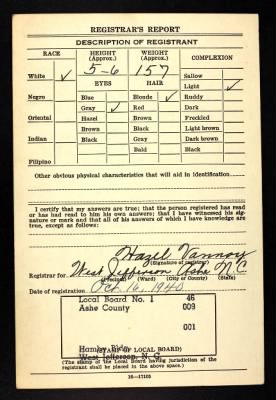 REGISTRAR'S REPORT
DESCRIPTION OF REGISTRANT
RACE HEIGHT (Approx.) WEIGHT (Approx.) COMPLEXION
5-6 157
White ✓ EYES HAIR Sallow
Light ✓
Negro Blue Blonde ✓ Ruddy
Gray ✓ Red Dark
Oriental Hazel Brown Freckled
Brown Black Light brown
Indian Black Gray Dark brown
Bald Black
Filipino
Other obvious physical characteristics that will aid in identification
I certify that my answers are true; that the person registered has read
or has had read to him his own answers; that I have witnessed his sig-
nature or mark and that all of his answers of which I have knowledge
are true, except as follows:
Hazel Vannoy
(Signature of registrar)
Registrar for West Jefferson Ashe N.C.
(Precinct) (Ward) (City or County) (State)
Date of registration Oct. 16, 1940
Local Board No. 1 46
Ashe County 009
001
(STAMP OF LOCAL BOARD)
West Jefferson, N. C.
(The stamp of the Local Board having jurisdiction of the
registrant shall be placed in the above space.)
16—17105